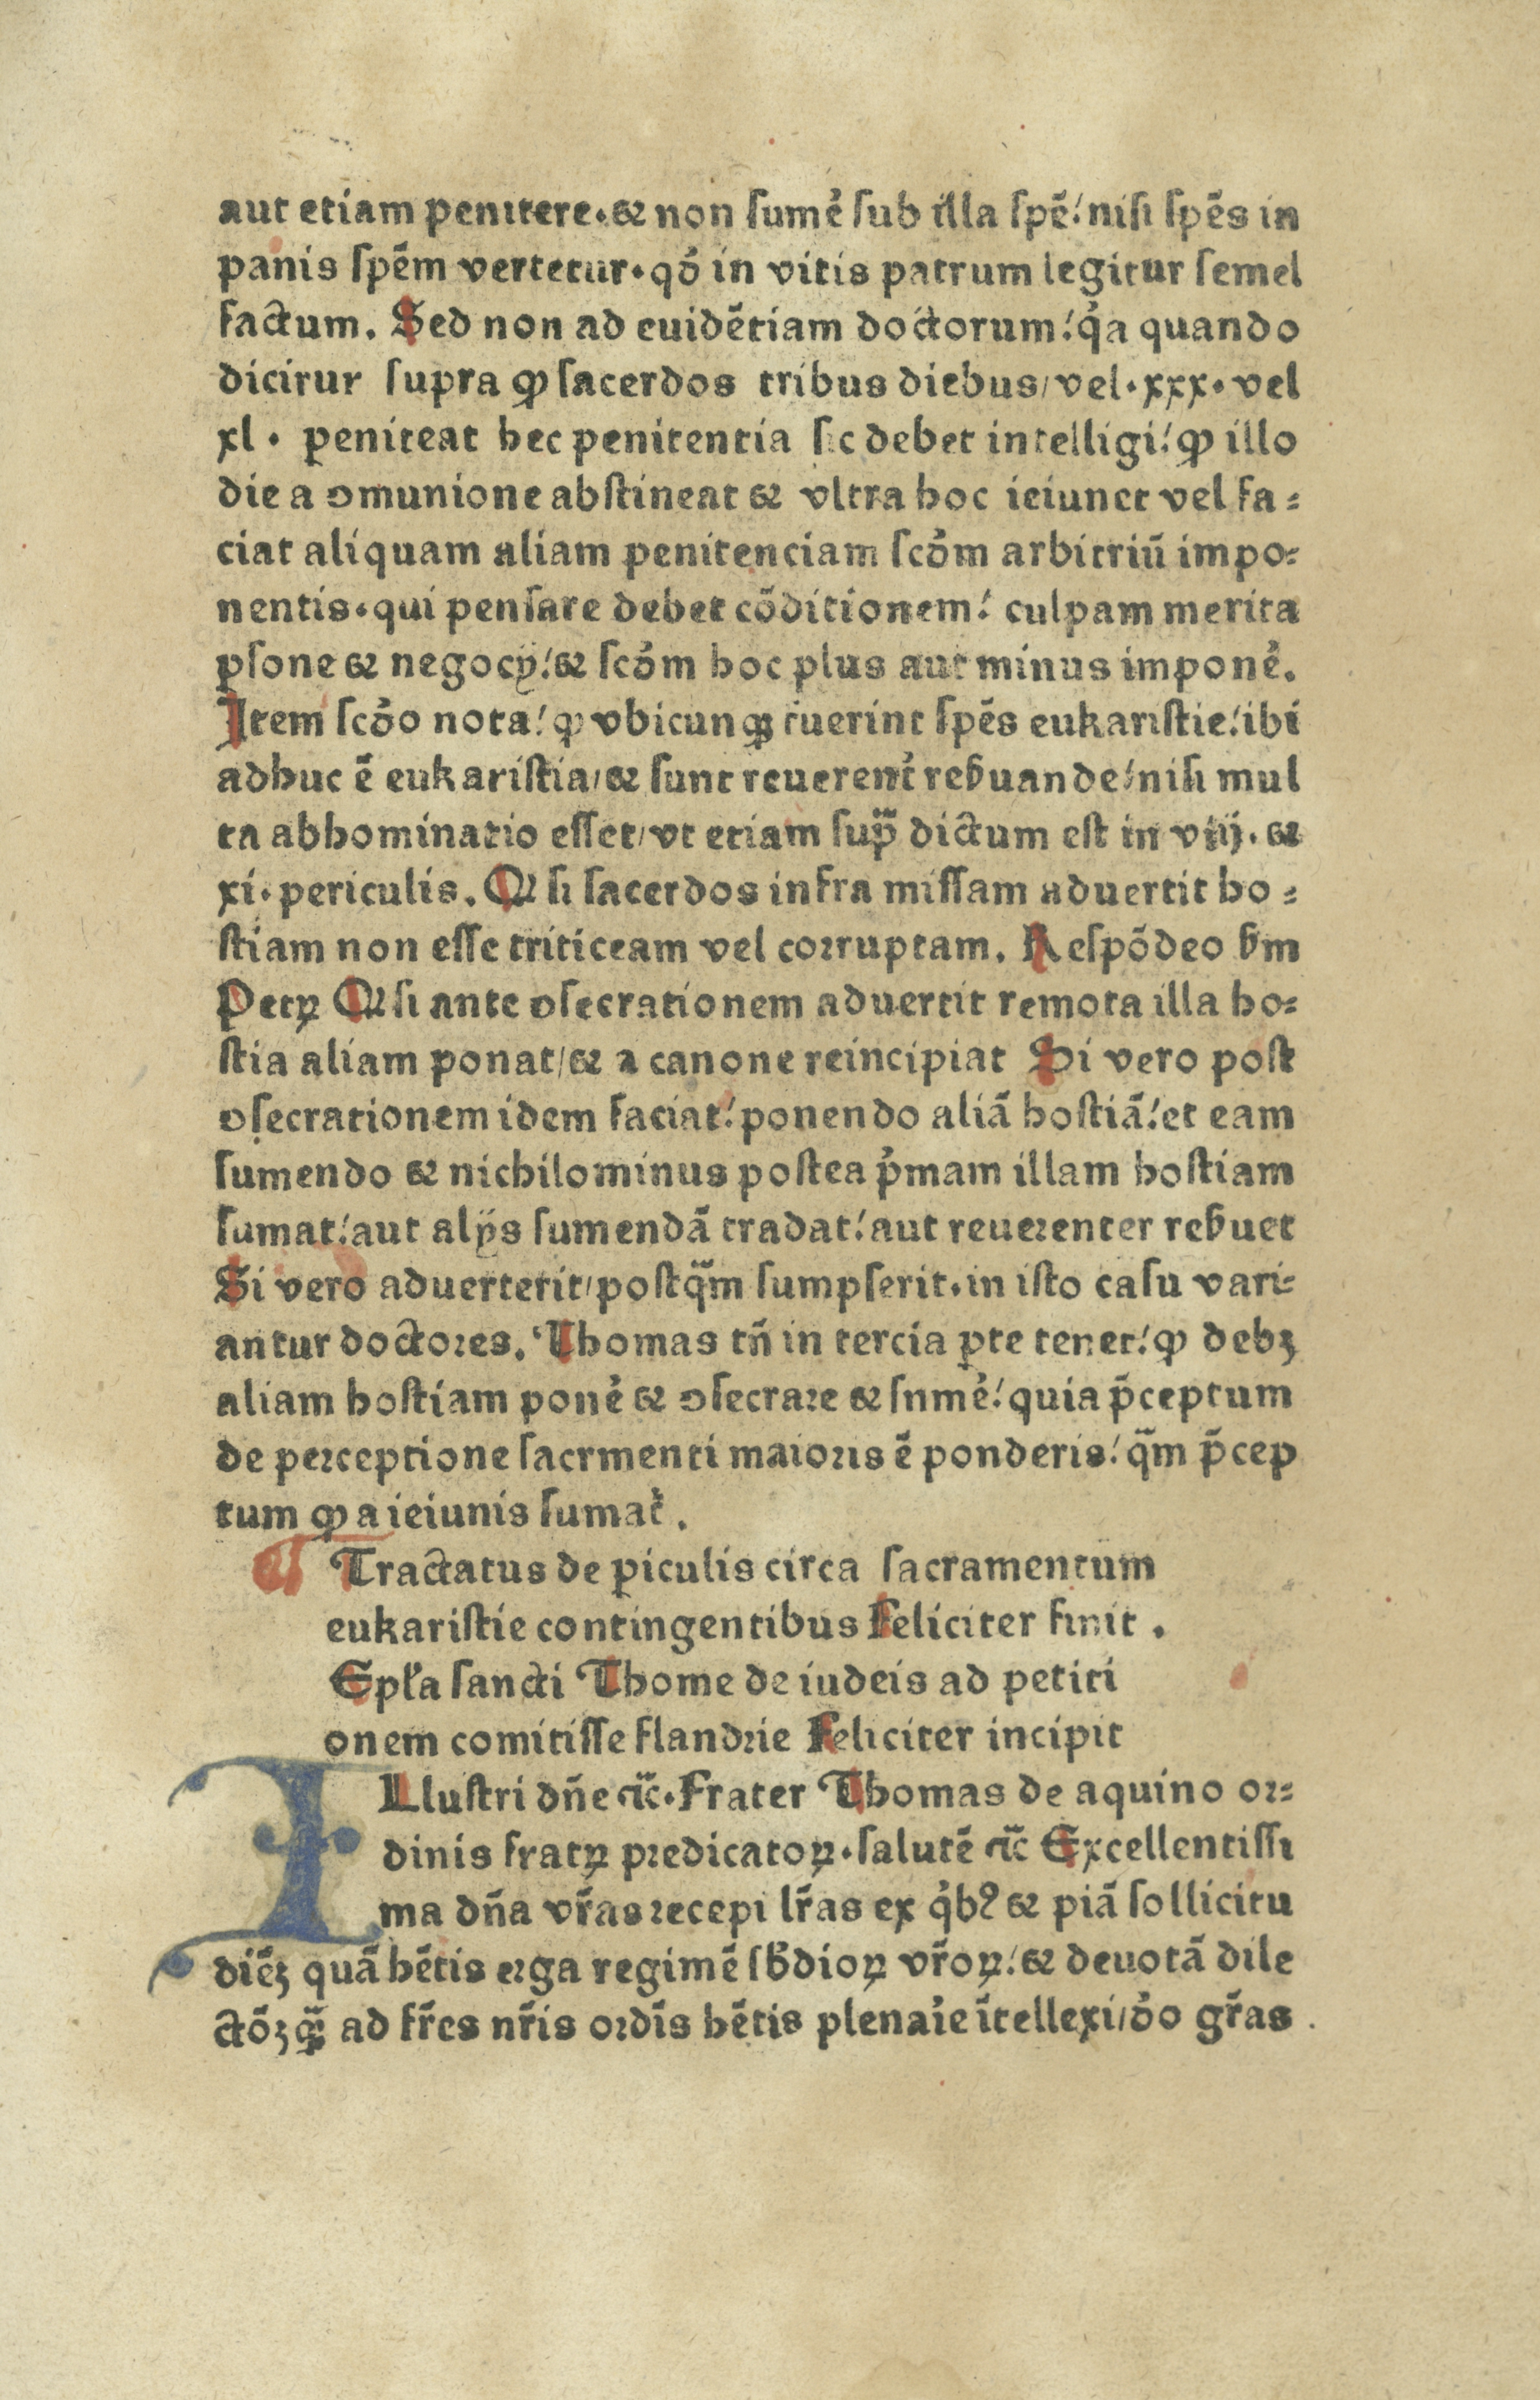 aut etiam penitere·⁊ non sumẽ sub illa spẽ! nisi spẽs in
panis spẽm vertetur·qđ in vitis patrum legitur semel
factum. Sed non ad euidẽtiam doctorum! qͥa quando
dicirur supra ꝙ sacerdos tribus diebus/vel·xxx·vel
xl· peniteat hec penitentia sic debet intelligi! ꝙ illo
die a ↄmunione abstineat ⁊ vltra hoc ieiunet vel fa⸗
ciat aliquam aliam penitenciam scđm arbitriũ impo⸗
nentis·qui pensare debet cõditionem! culpam merita
ꝑsone ⁊ negocÿ! ⁊ scđm hoc plus aut minus imponẽ.
Item scđo nota! ꝙ vbicunqꝫ fuerint spẽs eukaristie! ibi
adhuc ẽ eukaristia/⁊ sunt reuerent̉ reẜuande! nisi mul
ta abhominatio esset/vt etiam supᷓ dictum est in viij. ⁊
xi·periculis. Qꝛ si sacerdos infra missam aduertit ho⸗
stiam non esse triticeam vel corruptam. Respõdeo ẜm
Petꝝ Qꝛ si ante ↄsecrationem aduertit remota illa ho⸗
stia aliam ponat/⁊ a canone reincipiat Si vero post
ↄsecrationem idem faciat! ponendo aliã hostiã! et eam
sumendo ⁊ nichilominus postea pͥmam illam hostiam
sumat! aut alÿs sumendã tradat! aut reuerenter reẜuet
Si vero aduerterit/postqᷓm sumpserit·in isto casu vari⸗
antur doctores. Thomas tñ in tercia ꝑte tenet! ꝙ debꝫ
aliam hostiam ponẽ ⁊ ↄsecrare ⁊ snmẽ! quia p̃ceptum
de perceptione sacrmenti maioris ẽ ponderis! qᷓm p̃cep
tum ꝙ a ieiunis sumat̉.
Tractatus de ꝑiculis circa sacramentum
eukaristie contingentibus Feliciter finit.
Epl̃a sancti Thome de iudeis ad petiti
onem comitisse flandrie Feliciter incipit
ILlustri dñe ⁊c̃·Frater Thomas de aquino or⸗
dinis fratꝝ predicatoꝝ·salutẽ ⁊c̃ Excellentissi
ma dña vr̃as recepi lr̃as ex qͥbꝰ ⁊ piã sollicitu
diẽꝫ quã hẽtis erga regimẽ sb̃dioꝝ vr̃oꝝ! ⁊ deuotã dile
ctõꝫ qᷓꝫ ad fr̃es nr̃is ordĩs hẽtis plenaie ĩtellexi/đo gr̃as.